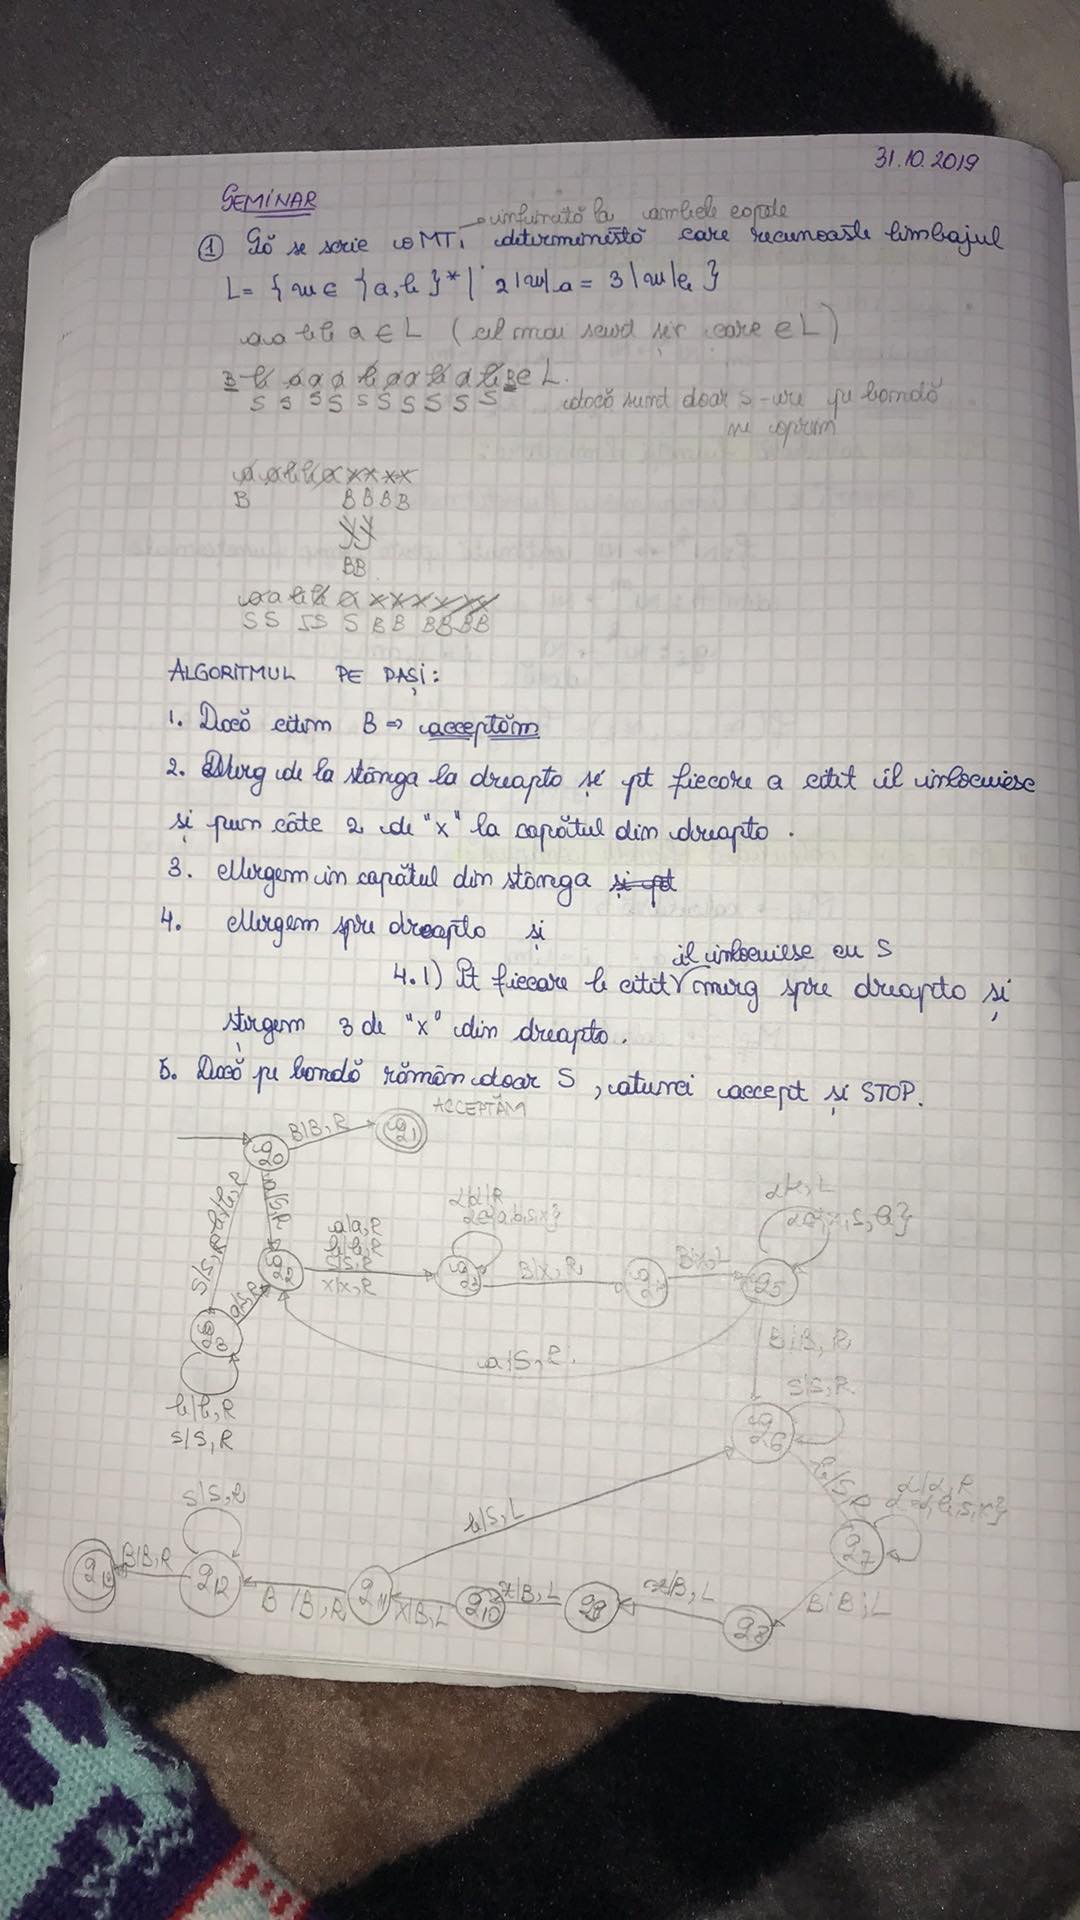 31.10.2019
SEMINAR
infinită la ambele capete
① Să se scrie o MT, deterministă care recunoaște limbajul
L = { w ∈ {a,b}* | 2|w|a = 3|w|b }
aabba ∈ L (cel mai scurt șir care ∈ L)
B b a a a b a a b a b B ∈ L.
S S S S S S S S S S dacă sunt doar S-uri pe bandă
ne oprim
a a b b a x x x x
B B B B B
BB
a a b b a x x x x x x
S S S S S B B B B B B
ALGORITMUL PE PAȘI:
1. Dacă citim B ⇒ acceptăm
2. Merg de la stânga la dreapta și pt fiecare a citit îl înlocuiesc
și pun câte 2 de "x" la capătul din dreapta.
3. Mergem în capătul din stânga și pt
4. Mergem spre dreapta și
îl înlocuiesc cu S
4.1) Pt fiecare b citit √ merg spre dreapta și
ștergem 3 de "x" din dreapta.
5. Dacă pe bandă rămân doar S, atunci accept și STOP.
ACCEPTĂM
q0 B|B,R q1
α|α,R
α∈{a,b,s,x}
a|a,R
b|b,R
S|S,R
x|x,R
B|x,R
B|x,L
q5
a|S,R
q3
a|S,R
B|B,R
S|S,R
b|b,R
S|S,R
q6
b|S,R
α|α,R
q7
S|S,R
b|S,L
B|B,R q12 B|B,R q11 x|B,L q10 x|B,L q9 x|B,L q8 B|B,L